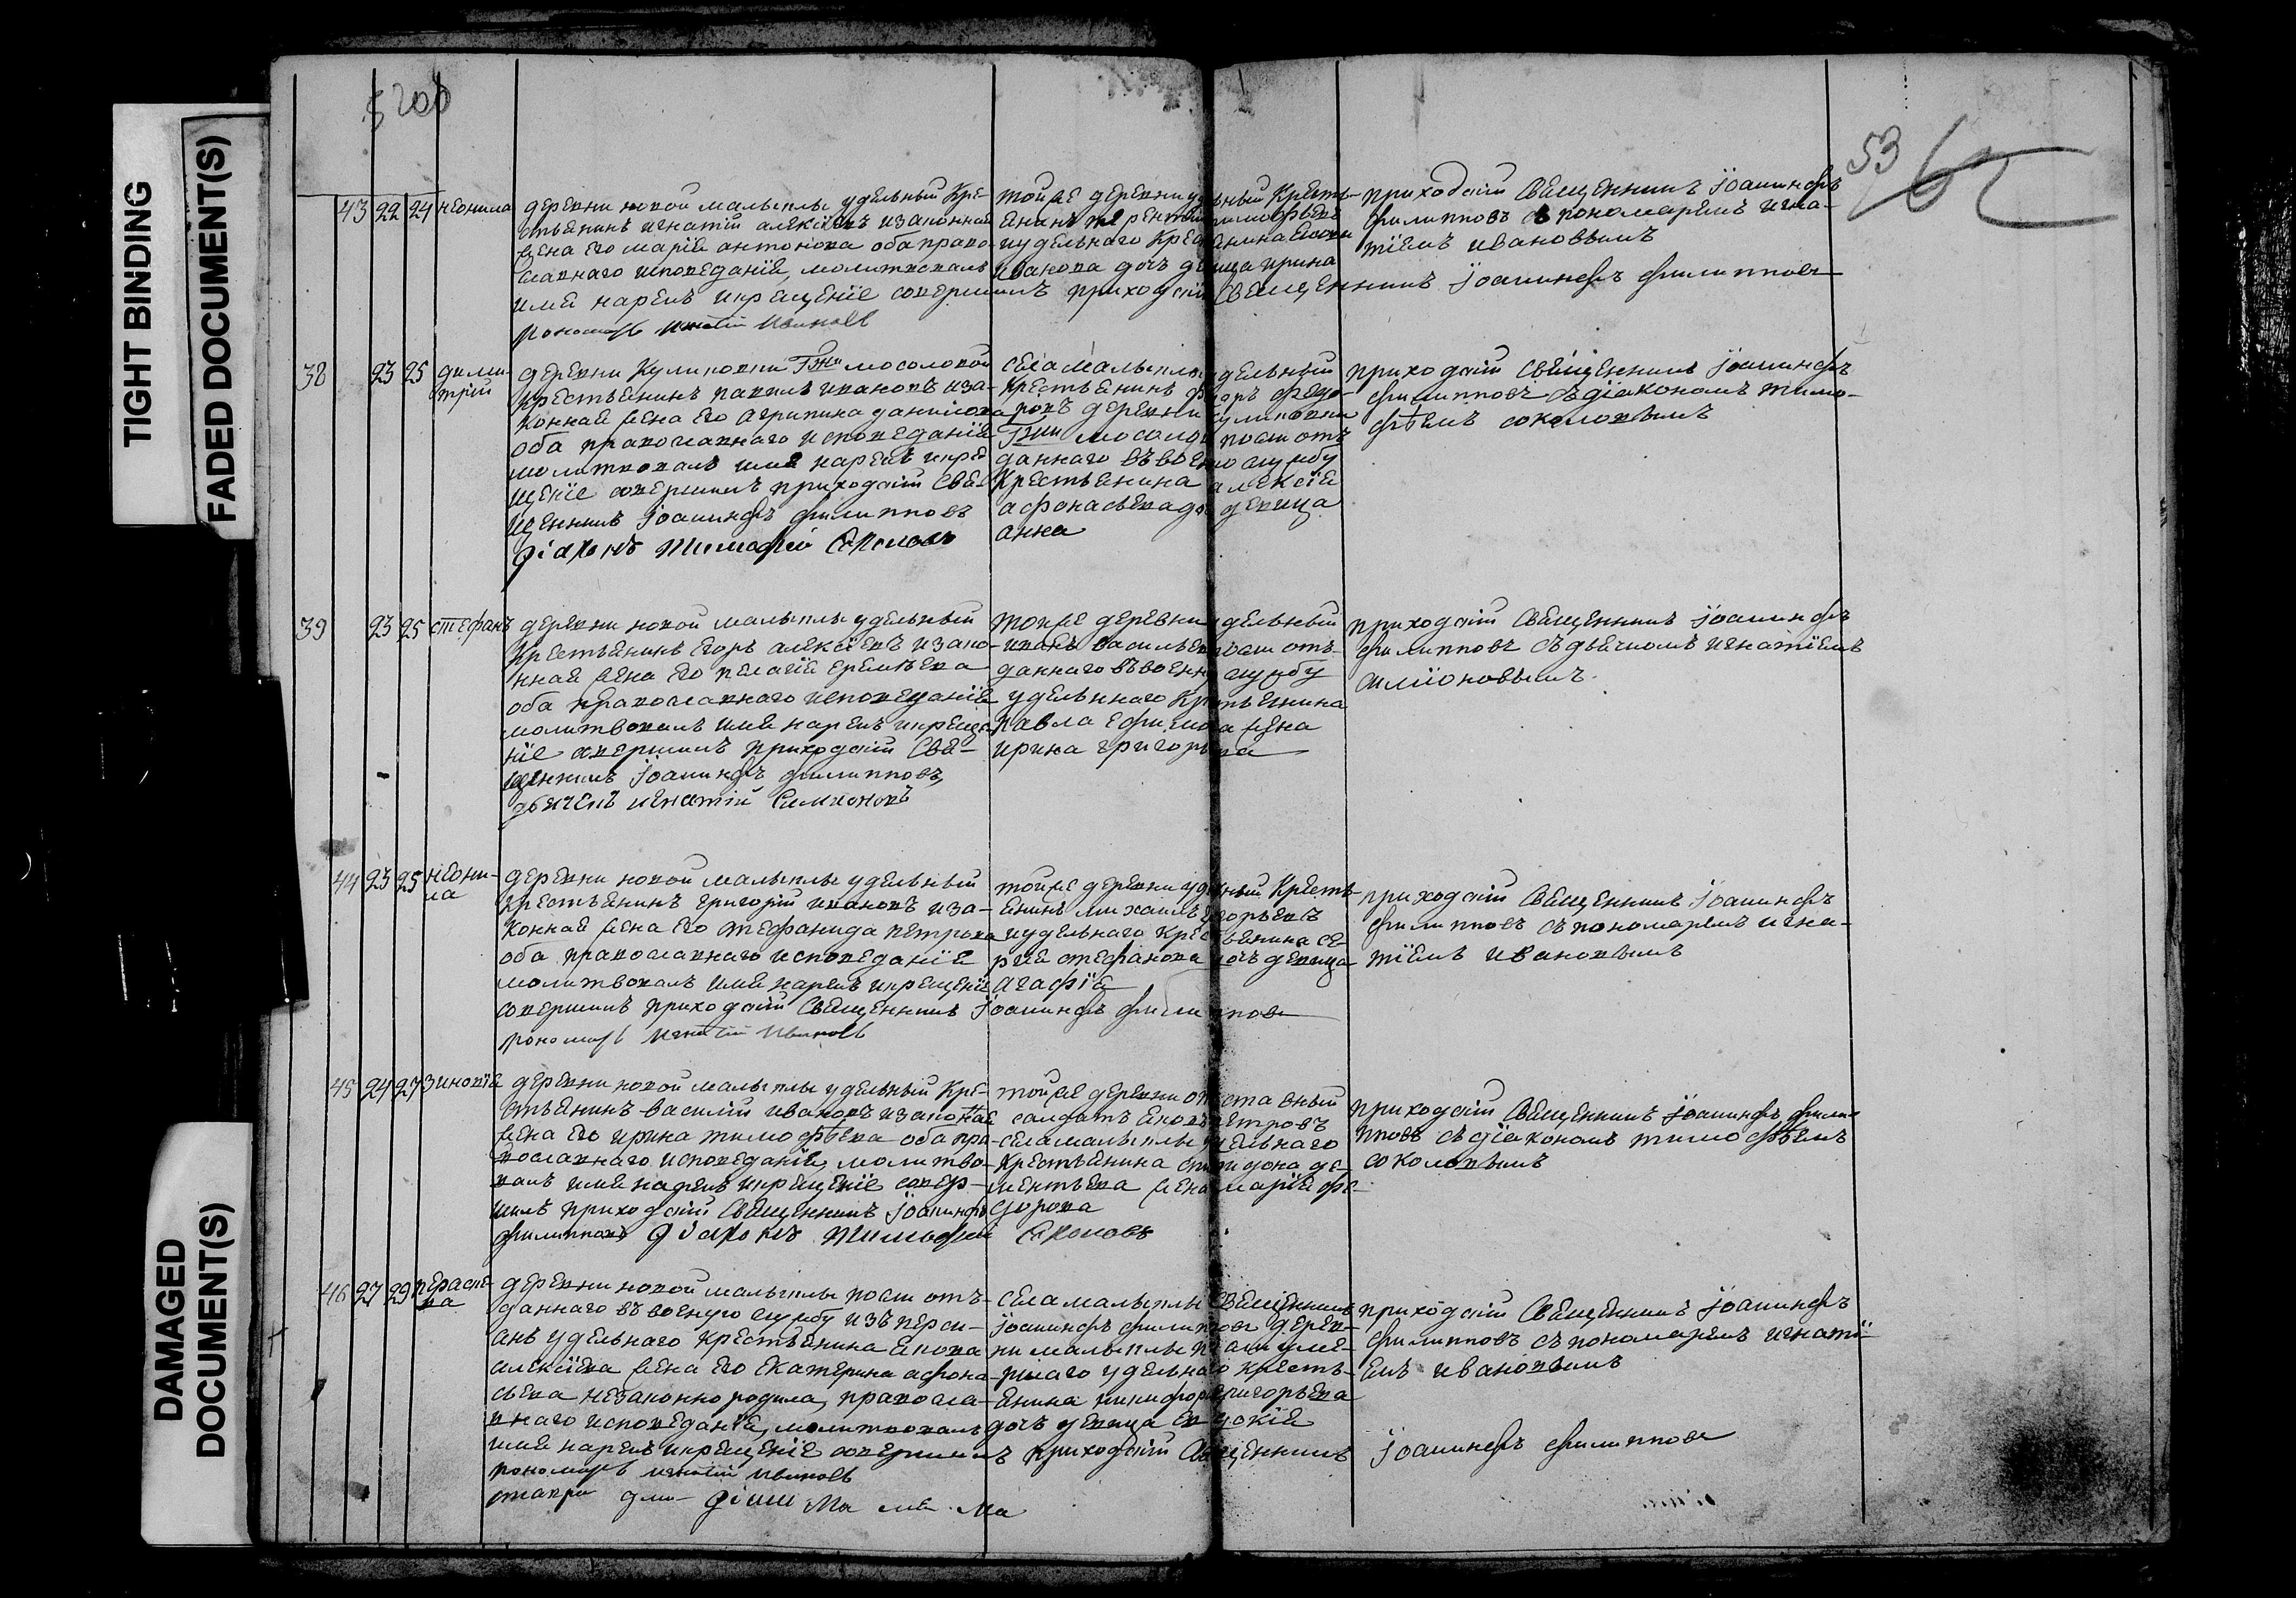 TIGHT BINDING
FADED DOCUMENT(S)
DAMAGED
DOCUMENT(S)
200
53
43 22 24 неонила
деревни новой малыклы удельный Кре-
стьѣнинъ игнатїй алексїевъ изаконная
жена его марїя антонова оба право-
славнаго исповеданїя, молитвовалъ
имя нарекъ икрещенїе совершилъ приходскїй Священникъ Іоаникифъ филипповъ
пономарь игнатїй Ивановъ
тойже деревни удельный Кресть-
янинъ терентїй тимофѣевъ
иудельнаго Крестьянина
иванова дочь девица ирина
приходскїй Священникъ Іоаникифъ
филипповъ съ пономаремъ игна-
тїемъ ивановымъ
38 23 25 дими-
трїй
деревни Куликовки Гжи мосоловой
крестьянинъ павилъ ивановъ иза-
конная жена его Агрипина данилова
оба православнаго исповеданїя
молитвовалъ имя нарекъ икре-
щенїе совершилъ приходскїй Свя-
щенникъ Іоаникифъ филипповъ
дїаконъ Тимофей Соколовъ
села малыклы удельный
крестьянинъ федо-
ровъ деревни куликовки
Гжи мосоловой после отъ
даннаго въ воено службу
Крестьянина алексїя
афонасьева дочь девица
анна
приходскїй Священникъ Іоаникифъ
филипповъ съ дїакономъ тимо-
фѣемъ соколовымъ
39 23 25 стефанъ
деревни новой малыклы удельный
Крестьянинъ Егоръ алексїевъ изако-
нная жена его пелагїя еремѣева
оба православнаго исповеданїя
молитвовалъ имя нарекъ икреще-
нїе совершилъ приходскїй Свя-
щенникъ Іоаникифъ филипповъ,
дьячекъ игнатїй Симионовъ
тойже деревни удельный
иванъ васильевъ после отъ-
даннаго въ военну службу
удельннаго Крестьянина
павла ефимова жена
ирина григорьева
приходскїй Священникъ Іоаникифъ
филипповъ съ дьячкомъ игнатїемъ
симїоновымъ
44 23 25 неони-
ла
деревни новой малыклы удельный
Крестьянинъ григорїй ивановъ иза-
конная жена его стефанида петрова
оба православнаго исповеданїя
молитвовалъ имя нарекъ икрещенїе
совершилъ приходскїй Священникъ Іоаникифъ филипповъ
пономарь игнатїй Ивановъ
тойже деревни удельный Кресть-
янинъ михаилъ егорьевъ
иудельнаго Крестьянина се-
ргїя стефанова дочь девица
агафїя
приходскїй Священникъ Іоаникифъ
филипповъ съ пономаремъ игна-
тїемъ ивановымъ
45 24 27 зиновїя
деревни новой малыклы удельный Кре-
стьянинъ василїй ивановъ изаконная
жена его ирина тимофѣева оба пра-
вославнаго исповеданїя, молитво-
валъ имя нарекъ икрещенїе совер-
шилъ приходскїй Священникъ Іоаникифъ
филипповъ дїаконъ Тимофей Соколовъ
тойже деревни отставный
салдатъ петровъ
села малыклы удельнаго
Крестьянина спиридона де-
ментьева жена марїя фе-
дорова
приходскїй Священникъ Іоаникифъ фили-
пповъ съ дїакономъ тимофѣемъ
соколовымъ
46 27 29 параске-
ва
деревни новой малыклы после отъ-
даннаго въ военую службу изъ перси-
анъ удельнаго Крестьянина
алексїева жена его екатерина афона-
сьева незаконно родила, правосла-
внаго исповеданїя, молитвовалъ
имя нарекъ икрещенїе совершилъ приходскїй Священникъ Іоаникифъ филипповъ
пономарь игнатїй Ивановъ
села малыклы Священникъ
Іоаникифъ филипповъ дерев-
ни малыклы после уме-
ршаго удельнаго кресть-
янина никифора григорьева
дочь девица евдокїя
приходскїй Священникъ Іоаникифъ
филипповъ съ пономаремъ игнатї-
емъ ивановымъ